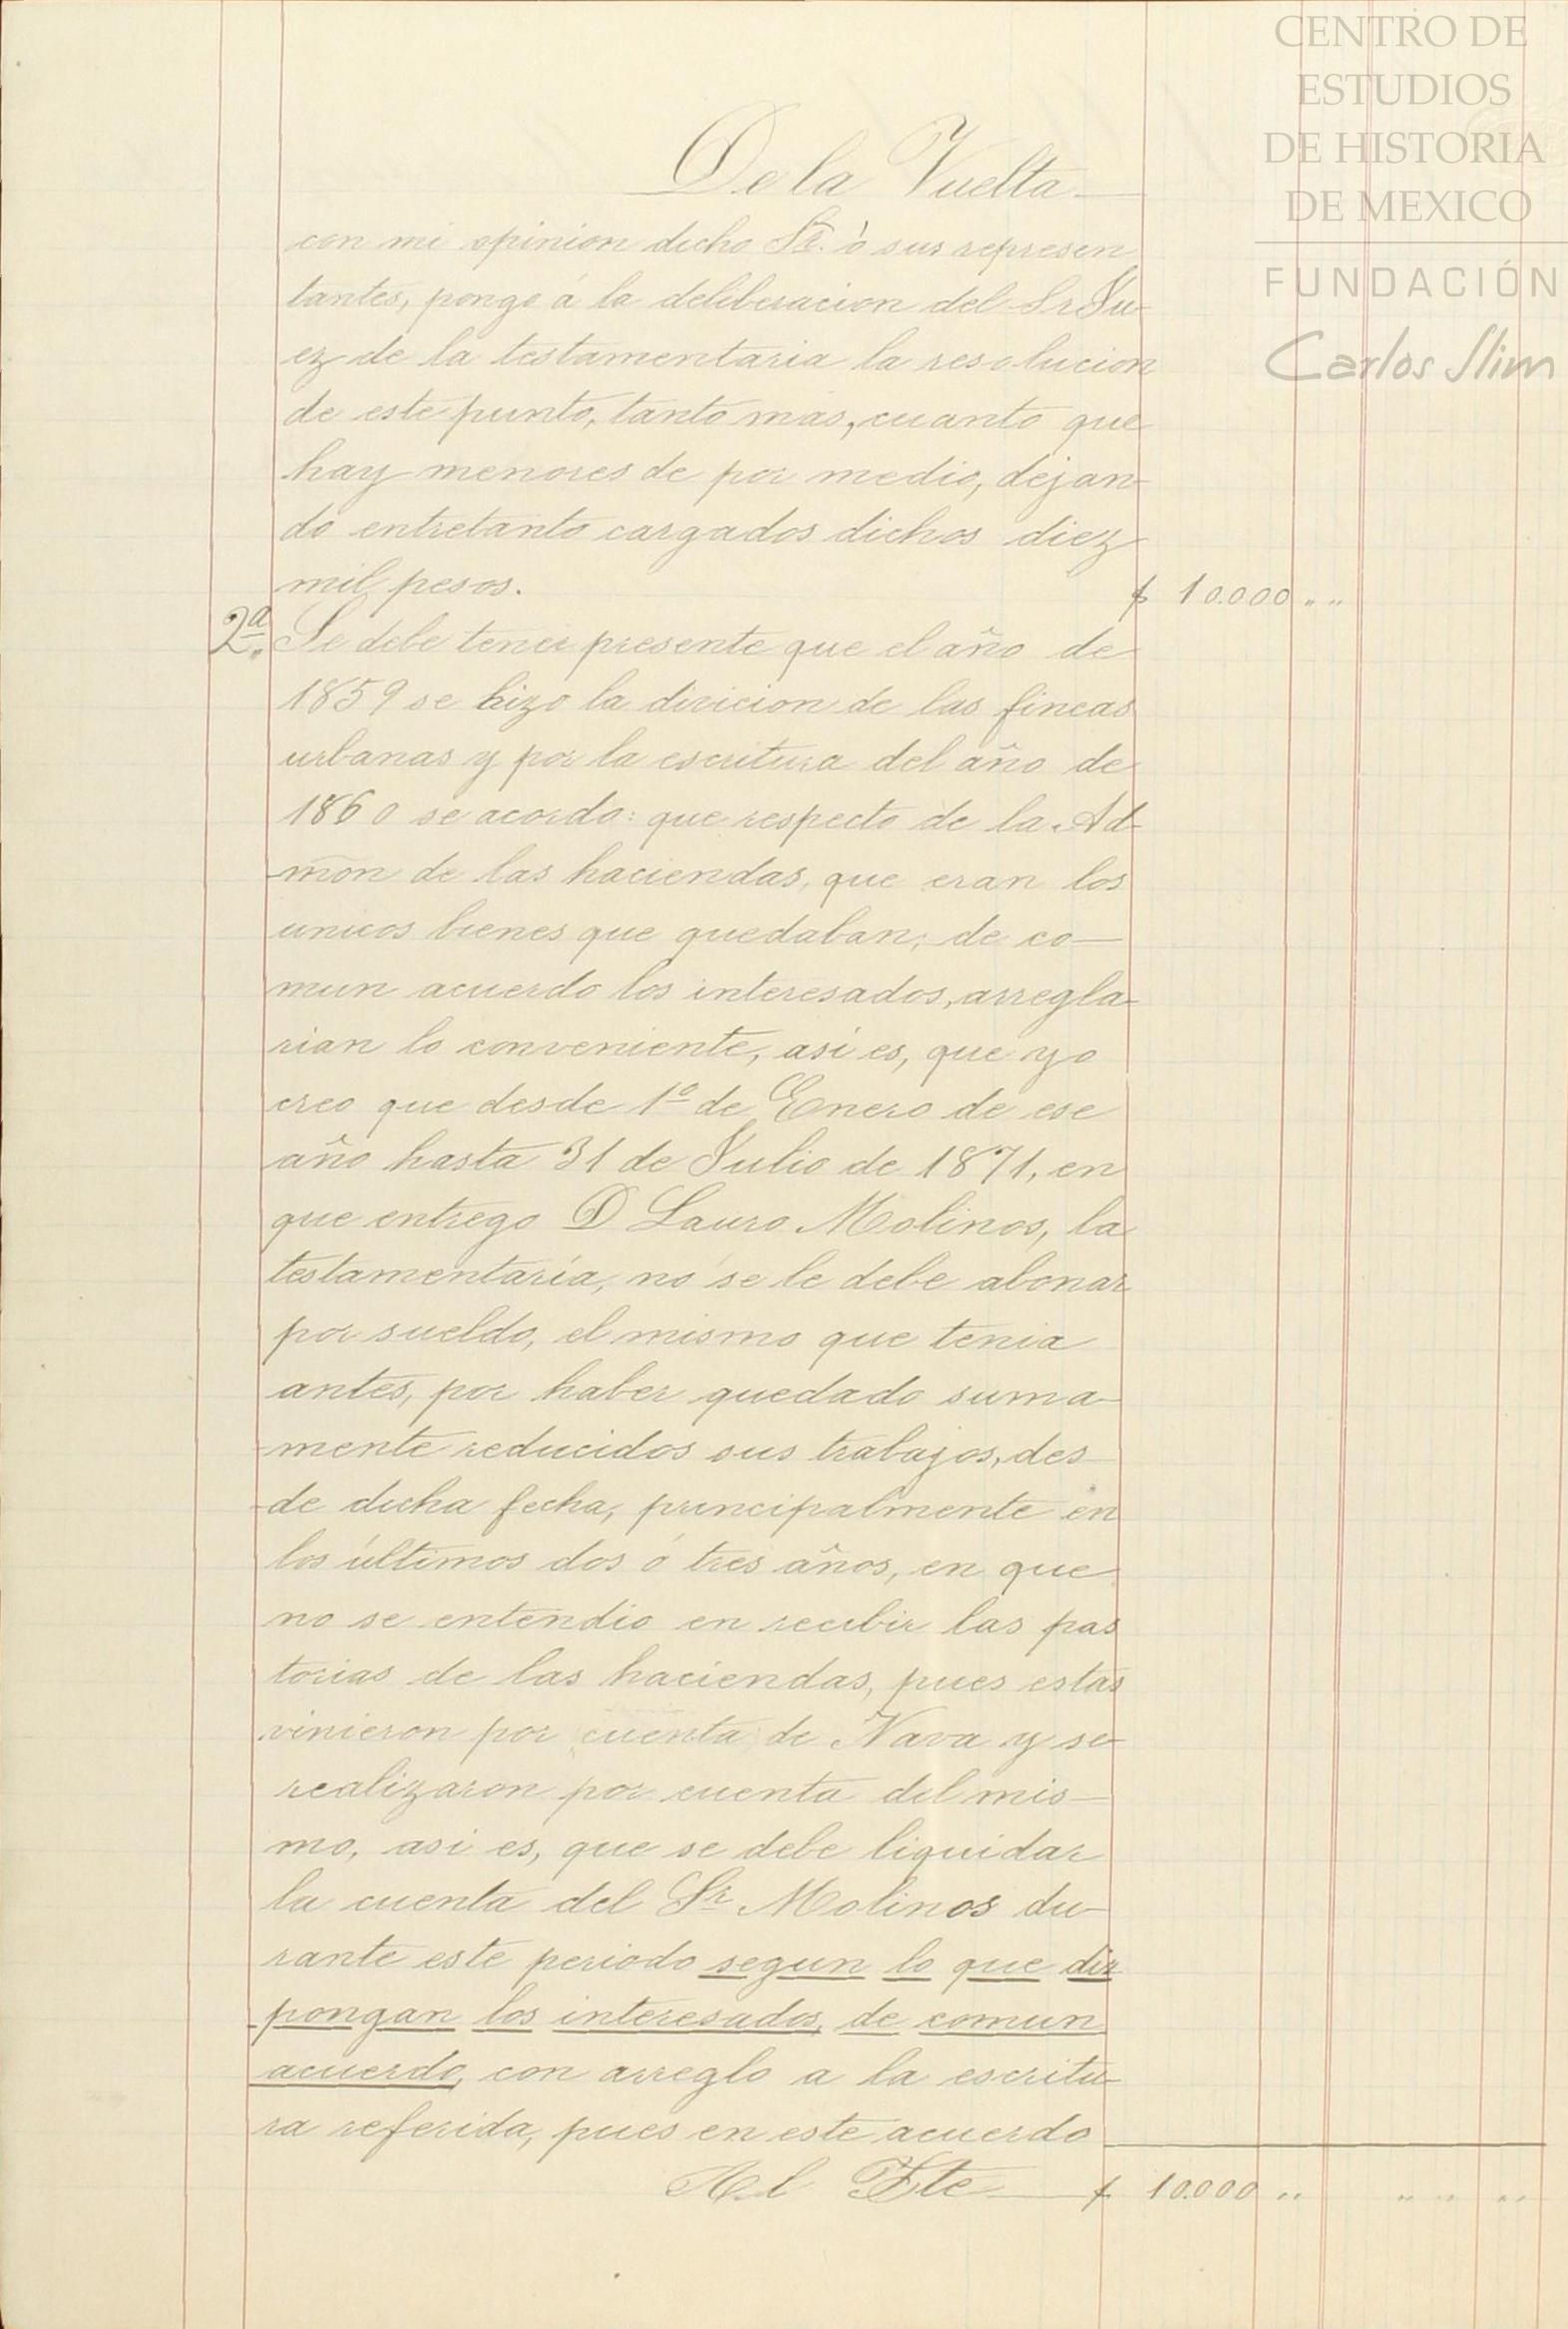 CENTRO DE
ESTUDIOS
DE HISTORIA
DE MEXICO
FUNDACIÓN
Carlos Slim
De la Vuelta
con mi opinion dicho Sr. ò sus represen
tantes, pongo á la deliberacion del Sr Ju-
ez de la testamentaria la resolucion
de este punto, tanto mas, cuanto que
hay menores de por medio, dejan-
do entretanto cargados dichos diez
mil pesos. $ 10.000 " "
2ª. Se debe tener presente que el año de
1859 se hizo la divicion de las fincas
urbanas y por la escritura del año de
1860 se acordo: que respecto de la Ad-
mon de las haciendas, que eran los
unicos bienes que quedaban; de co-
mun acuerdo los interesados, arregla-
rian lo conveniente, asi es, que yo
creo que desde 1º de Enero de ese
año hasta 31 de Julio de 1871, en
que entrego D Lauro Molinos, la
testamentaría, no se le debe abonar
por sueldo, el mismo que tenia
antes, por haber quedado suma-
mente reducidos sus trabajos, des
de dicha fecha, principalmente en
los últimos dos ó tres años, en que
no se entendio en recibir las pas
torias de las haciendas, pues estas
vinieron por cuenta de Nava y se
realizaron por cuenta del mis-
mo, asi es, que se debe liquidar
la cuenta del Sr Molinos du-
rante este periodo segun lo que dis
pongan los interesados, de comun
acuerdo, con arreglo a la escritu-
ra referida, pues en este acuerdo
Al Fte $ 10.000 " " " " " "